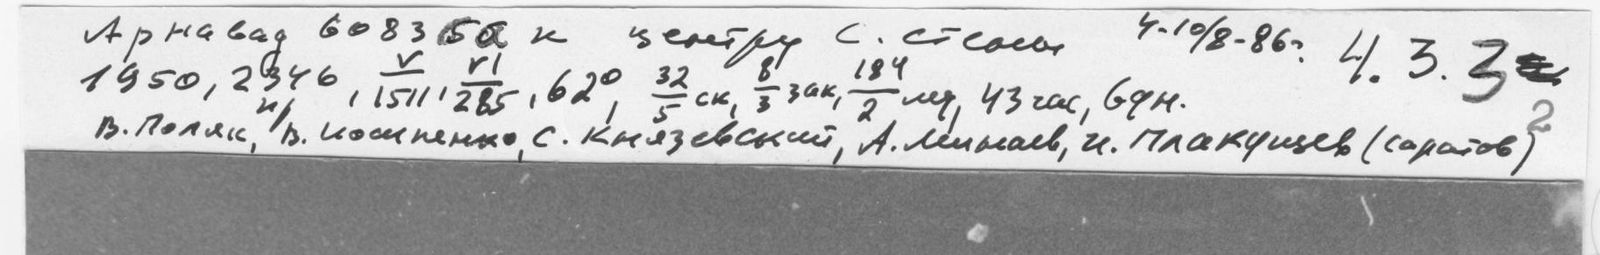 Арнавад 6083 5а к центру С. стены 4-10/8-86г. 4.3.3
1950, 2346, V/1511, VI/285, 62°, 32/5 ск, 8/3 зак, 184/2 мд, 43 час, 6дн. 2
н/
В. Поляк, В. Иосипенко, С. Князевский, А. Минаев, И. Плакущев (Саратов)